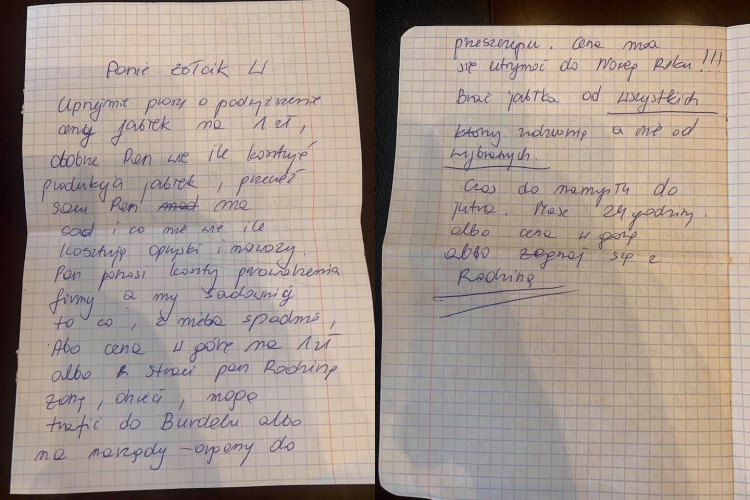 Panie Żółcik W
Uprzejmie proszę o podwyższenie
ceny jabłek na 1 zł,
dobrze Pan wie ile kosztuje
produkcja jabłek, przecież
sam Pan ma
sad i co nie wie ile
kosztują opryski i nawozy.
Pan ponosi koszty prowadzenia
firmy a my sadownicy
to co, z nieba spadnie,
Abo cena w górę na 1 zł
albo straci pan Rodzinę
żonę, dzieci, mogą
trafić do Burdelu albo
na narządy - organy do
przeszczepu. Cena ma
się utrzymać do Nowego Roku!!!
Brać jabłka od wszystkich
a nie od
wybranych.
Czas do namysłu do
jutra. Masz 24 godziny.
albo cena w górę
albo żegnaj się z
Rodziną